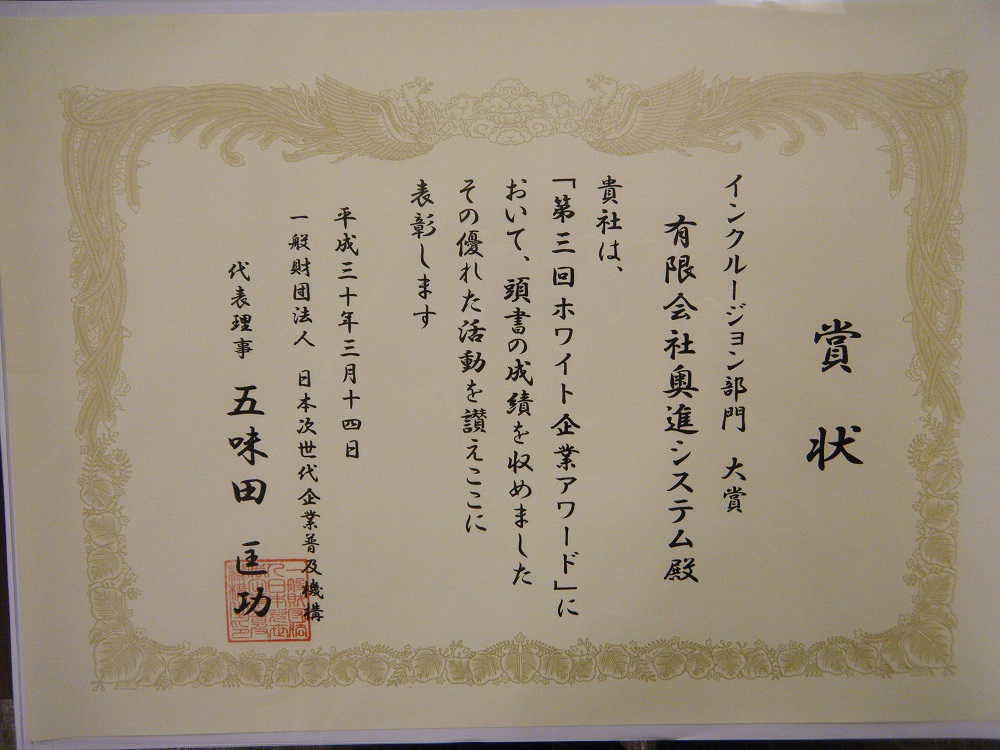 賞状
インクルージョン部門 大賞
有限会社奥進システム殿
貴社は、
「第三回ホワイト企業アワード」に
おいて、頭書の成績を収めました
その優れた活動を讃えここに
表彰します
平成三十年三月十四日
一般財団法人 日本次世代企業普及機構
代表理事 五味田 匡功